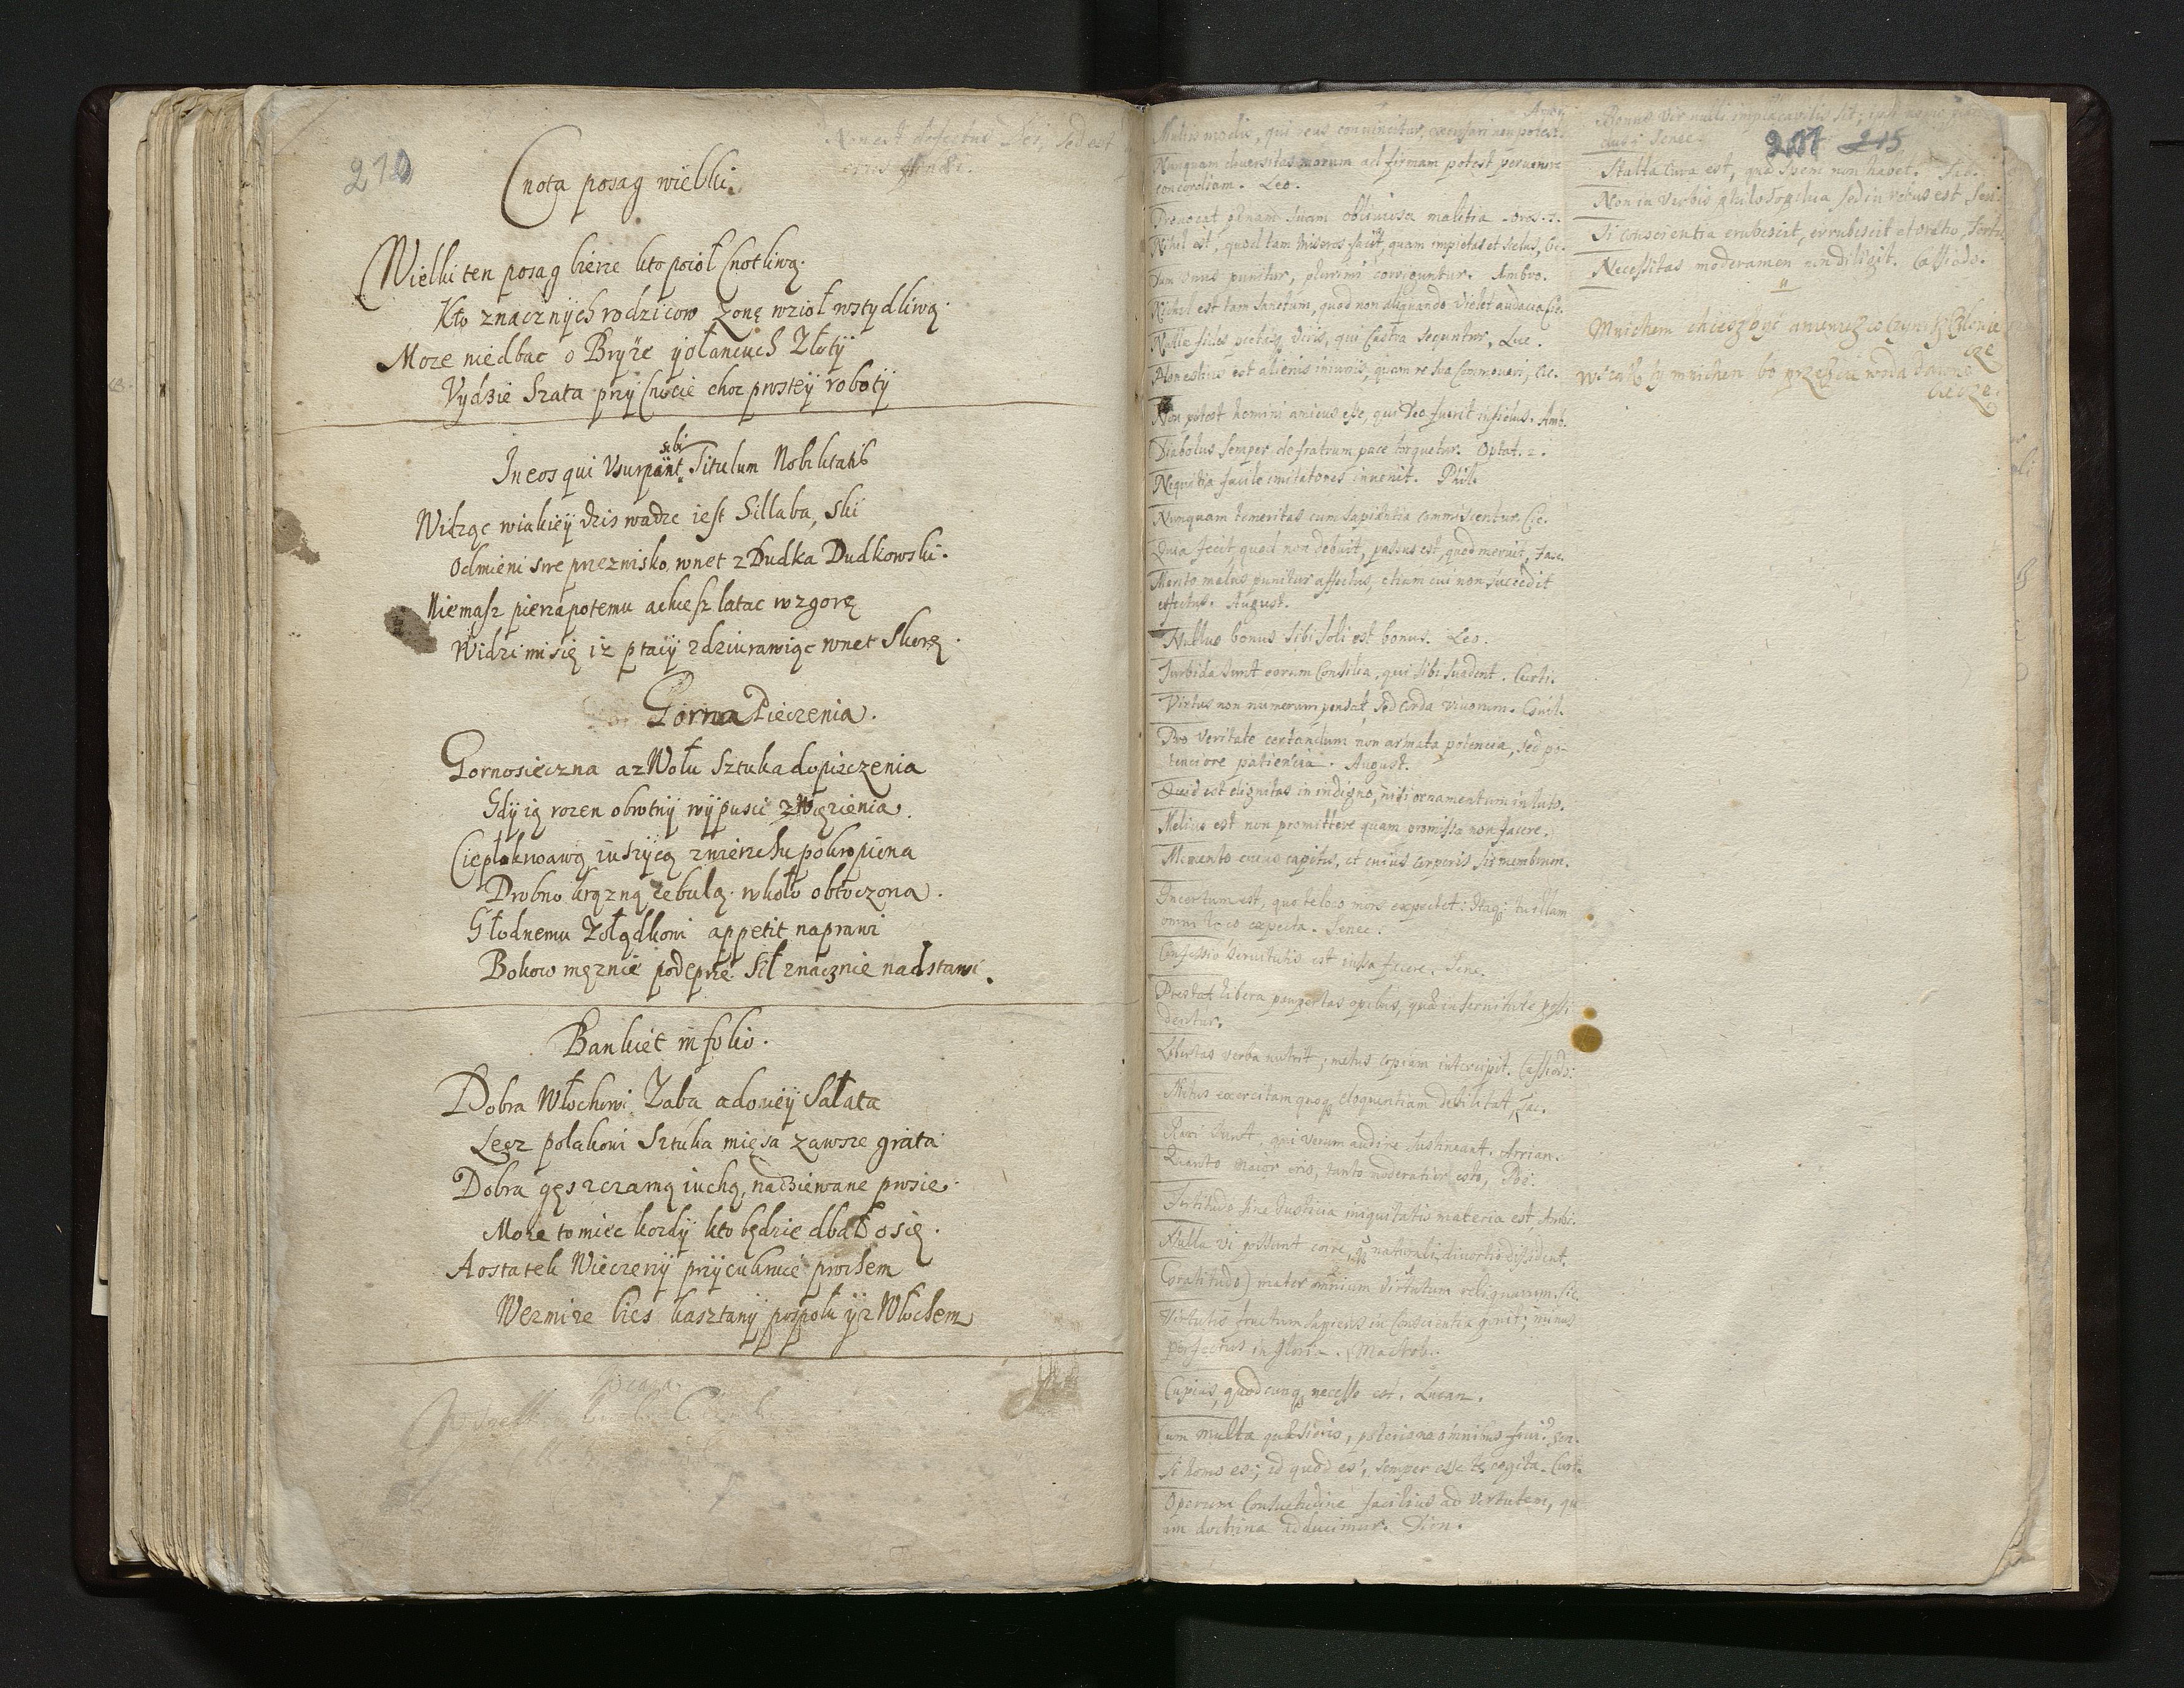 210
Non est defectus Dei, sed est
Cnota posag wielki.
Wielki ten posag bierze kto poioł Cnotliwą.
Kto znacznÿch rodzicow Zonę wzioł wstydliwą.
Moze niedbac o Bryże ÿ o łancuch Złotÿ
Vydzie Szata przÿ Cnocie choc prosteÿ robotÿ
In eos qui Vsurpant sibi Titulum Nobilitatis
Widzęc wiakieÿ dzis wadze iest Sillaba, Ski
Odmieni swe przezwisko, wnet z Dudka Dudkowski.
Niemasz pierza potemu a chcesz latac wzgorę
Widzi mi się iz ptacÿ zdziurawiąc wnet Skorę.
Gorna Pieczenia.
Gornosieczna az Wołu Sztuka do pieczenia
Gdÿ ią rozen obrotnÿ wÿpusci z Więzienia.
Ciepłokrwawą iuszÿcą zwierzchu pokropiona
Drobno krązną cebulą. wkoło obtoczona.
Głodnemu Zołądkowi appetit naprawi
Bokow męznie podeprze. Sił znacznie nadstawi.
Bankiet in folio.
Dobra Włochowi Zaba a do nieÿ Sałata
Lecz polakowi Sztuka mięsa zawsze grata
Dobra gęs zczarną iuchą, nadziewane prosie.
Moze to miec kozdÿ kto będzie dbał o się.
A ostatek Wieczerzÿ przÿcukruie prochem
Wezmi ze bies kasztanÿ pospołu ÿ z Włochem
Multis modis, qui reus convincitur, excusari non potest.
Nunquam diversitas morum ad firmam potest pervenire
concordiam. Leo.
Nihil est, quod tam miseros faciat, quam impietas et scelus, Cic.
Dum unus punitur, plurimi corriguntur. Ambro.
Nihil est tam sanctum, quod non aliquando violet audacia Cic.
Nulla fides pietasq viris, qui Castra sequntur, Luc.
Non potest homini amicus esse, qui Deo fuerit infidus. Amb.
Diabolus semper de fratrum pace torquetur. Optat. 2.
Nequitia facile imitatores invenit. Phil.
Nunquam temeritas cum sapientia commiscentur. Cic.
Quia fecit, quod non debuit, passus est, quod meruit,
Merito malus punitur affectus, etiam cui non succedit
effectus. August.
Nullus bonus sibi soli est bonus. Leo.
Turbida sunt eorum Consilia, qui sibi suadent. Curti.
Virtus non numerum pensat, sed corda virorum.
Pro veritate certandum non armata potencia, sed po-
tenciore patiencia. August.
Quid est dignitas in indigno, nisi ornamentum in luto.
Melius est non promittere quam promissa non facere.
Memento cuius capitis, et cuius corporis sis membrum.
Incertum est, quo te loco mors expectet: Itaq tu illam
omni loco expecta. Senec.
Confessio servitutis est iussa facere. Sene.
Prestat libera paupertas opibus,
Libertas verba nutrit; metus copiam intercipit. Cassiodo:
Metus exercitam quoq eloquentiam debilitat, Tac.
Rari sunt, qui verum audire sustineant. Arrian.
Quanto maior eris, tanto moderatior esto,
Fortitudo sine Iusticia iniquitatis materia est, Ambr.
Nulla vi possunt coire, naturali divortio dissident.
Gratitudo) mater omnium virtutum reliquarum. Cic.
Virtutis fructum sapiens in Conscientia ponit; minus
perfectus in gloria. Macrob.
Cupias, quodcunq necesse est. Lucan.
Si homo es; id quod es, semper esse te cogita. Curt.
Operum Consuetudine facilius ad virtutem, qu
am doctrina adducimur. Dion.
215
Stulta Cura est, que Spem non habet.
Non in Verbis philosophia sed in rebus est
Si conscientia erubescit, errubescit et oratio,
Necessitas moderamen non diligit. Cassiodo.
Mnichem chcesz być